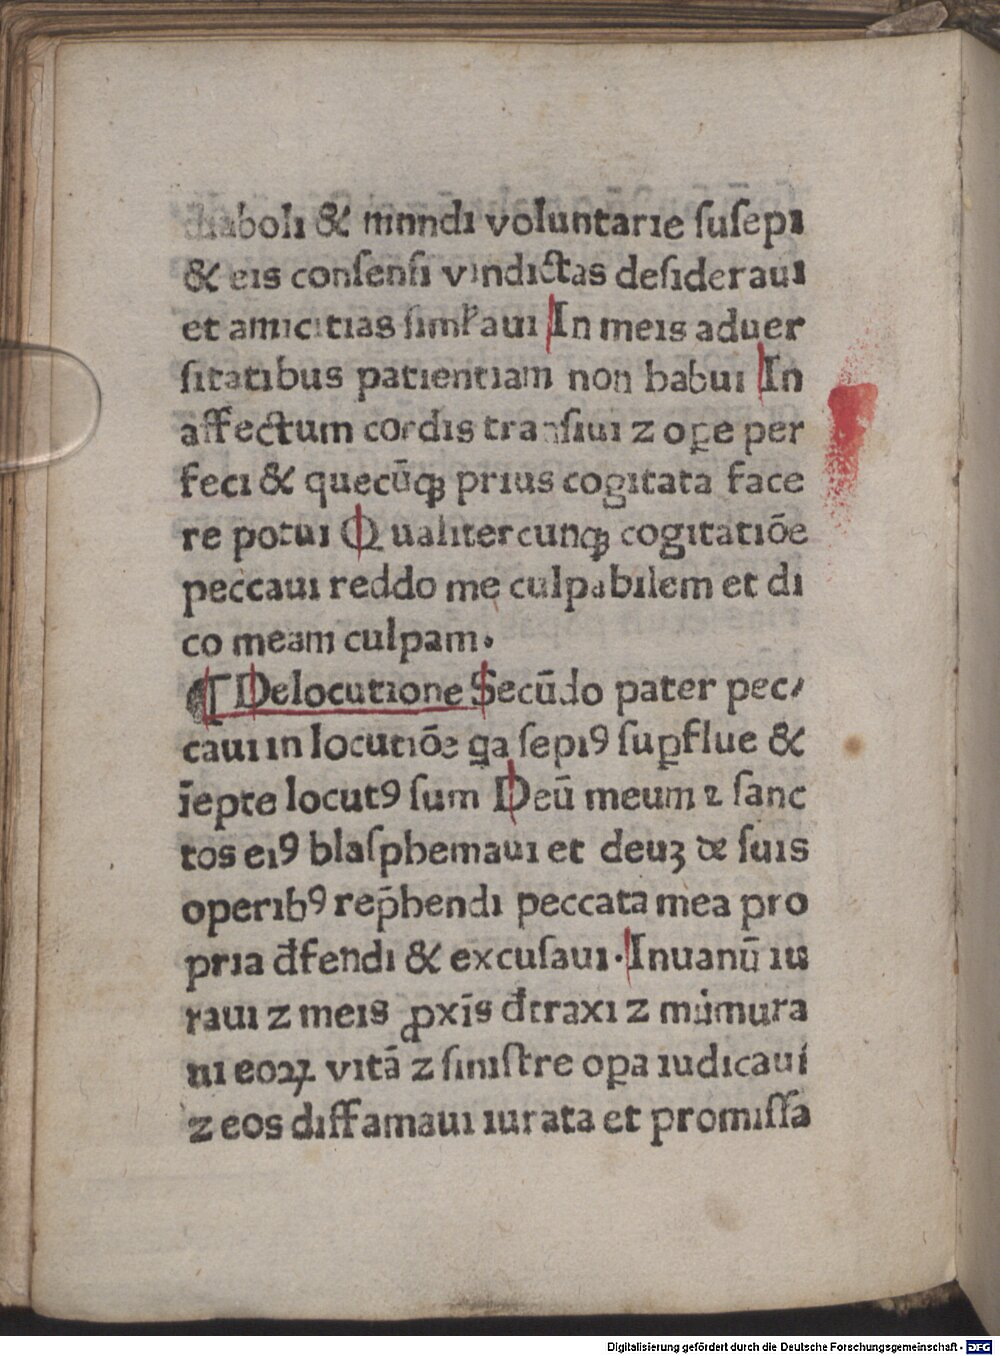 diaboli & mundi voluntarie suſepi
& eis conſenſi vindictas deſideraui
et amicitias ſimlꝰaui In meis aduer
ſitatibus patientiam non habui In
affectum cordis tranſiui ⁊ oꝑe per
feci & quecūqꝫ prius cogitata face
re potui Qualitercunqꝫ cogitatiōe
peccaui reddo me culpabilem et di
co meam culpam.
¶ Delocutione Secūdo pater pec/
caui in locutiōe qa ſepiꝰ ſuꝑflue &
īepte locutꝰ ſum Deū meum ⁊ ſanc
tos eiꝰ blaſphemaui et deuꝫ de ſuis
operibꝰ rep̄hendi peccata mea pro
pria đfendi & excuſaui. Inuanū iu
raui ⁊ meis ꝓxīs đtraxi ⁊ mur̄mura
ui eoꝝ vitā ⁊ ſiniſtre oꝑa iudicaui
⁊ eos diffamaui iurata et promiſſa
Digitalisierung gefördert durch die Deutsche Forschungsgemeinschaft - DFG